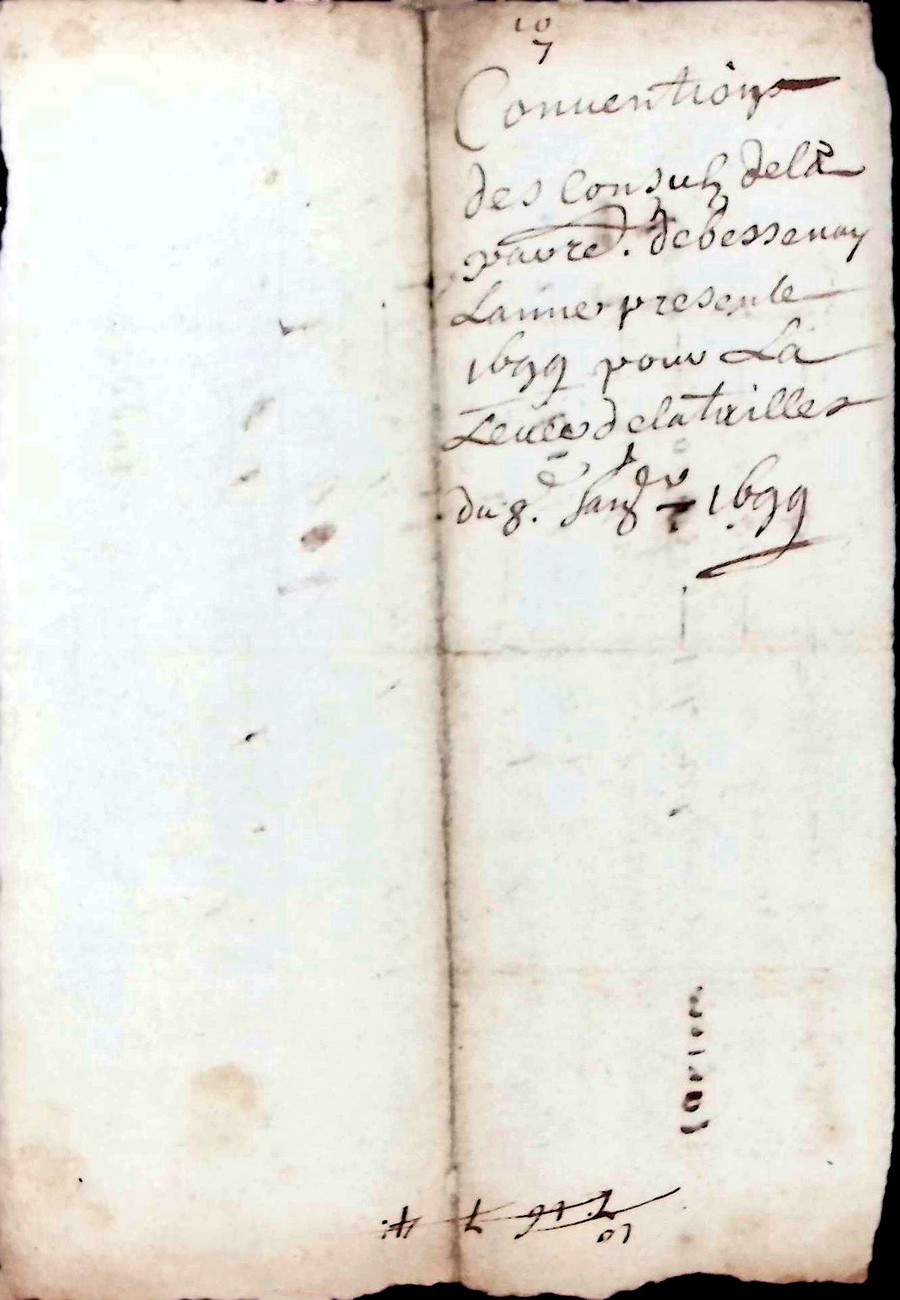 10
7
Conuentions
des Consulz dela
de bessenay
Lannee presente
1699 pour La
Leuee delatailles
du 8e. Janvr 1699
10